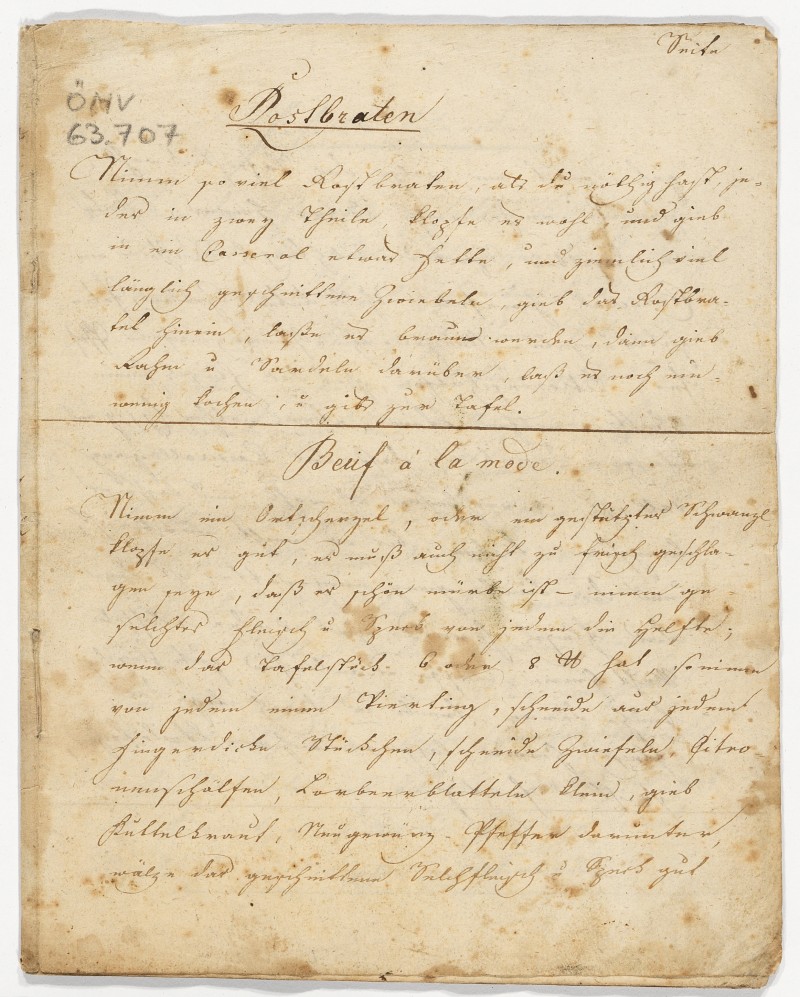 Seite
ÖMV
63.707
Rostbraten
Nimm so viel Rostbraten, als du nöthig hast, je-
der in zwey Theile, klopfe es wohl, und gieb
in ein Casserol etwas Fette, und ziemlich viel
länglich geschnittene Zwiebeln, gieb das Rostbra-
tel hinein, laße es braun werden, dann gieb
Rahm u Sardeln darüber, laß es noch ein-
wenig kochen, u gibs zur Tafel.
Beuf á la mode.
Nimm ein Ortscherzel, oder ein gestutztes Schwanzl
klopfe es gut, es muß auch nicht zu frisch geschla-
gen seye, daß es schön mürbe ist – nimm ge-
selchtes Fleisch u Speck von jedem die Helfte;
wenn das Tafelstück 6 oder 8 ℔ hat, so nimm
von jedem einen Vierting, schneide aus jedem
fingerdicke Stückchen, schneide Zwiefeln, Citro-
nenschälfen, Lorbeerblatteln klein, gieb
Kuttelkraut, Neugewürz Pfeffer darunter,
wälze das geschnittene Selchfleisch u Speck gut